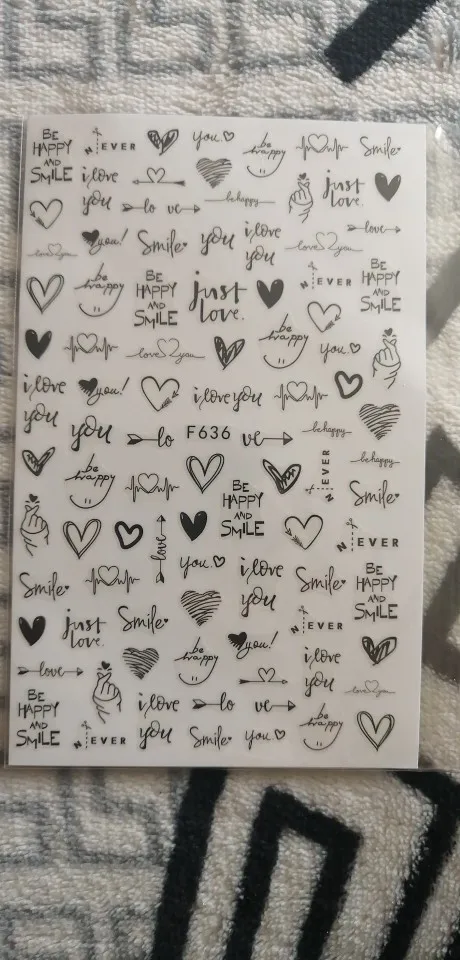 BE
HAPPY
AND
SMILE
N EVER
you.
be
happy
Smile
i love
you
lo ve
be happy
just
love.
love
you!
Smile
you
i love
you
love you
love you
be
happy
BE
HAPPY
AND
SMILE
just
love.
N EVER
BE
HAPPY
AND
SMILE
love you
be
happy
you.
i love
you
you!
i love you
you
lo F636 ve
be happy
be
happy
BE
HAPPY
AND
SMILE
N EVER
be happy
Smile
love
you.
i love
you
N EVER
Smile
Smile
BE
HAPPY
AND
SMILE
just
love.
Smile
N EVER
love
be
happy
you!
i love
you
love you
BE
HAPPY
AND
SMILE
N EVER
i love
you
lo ve
Smile
you.
be
happy